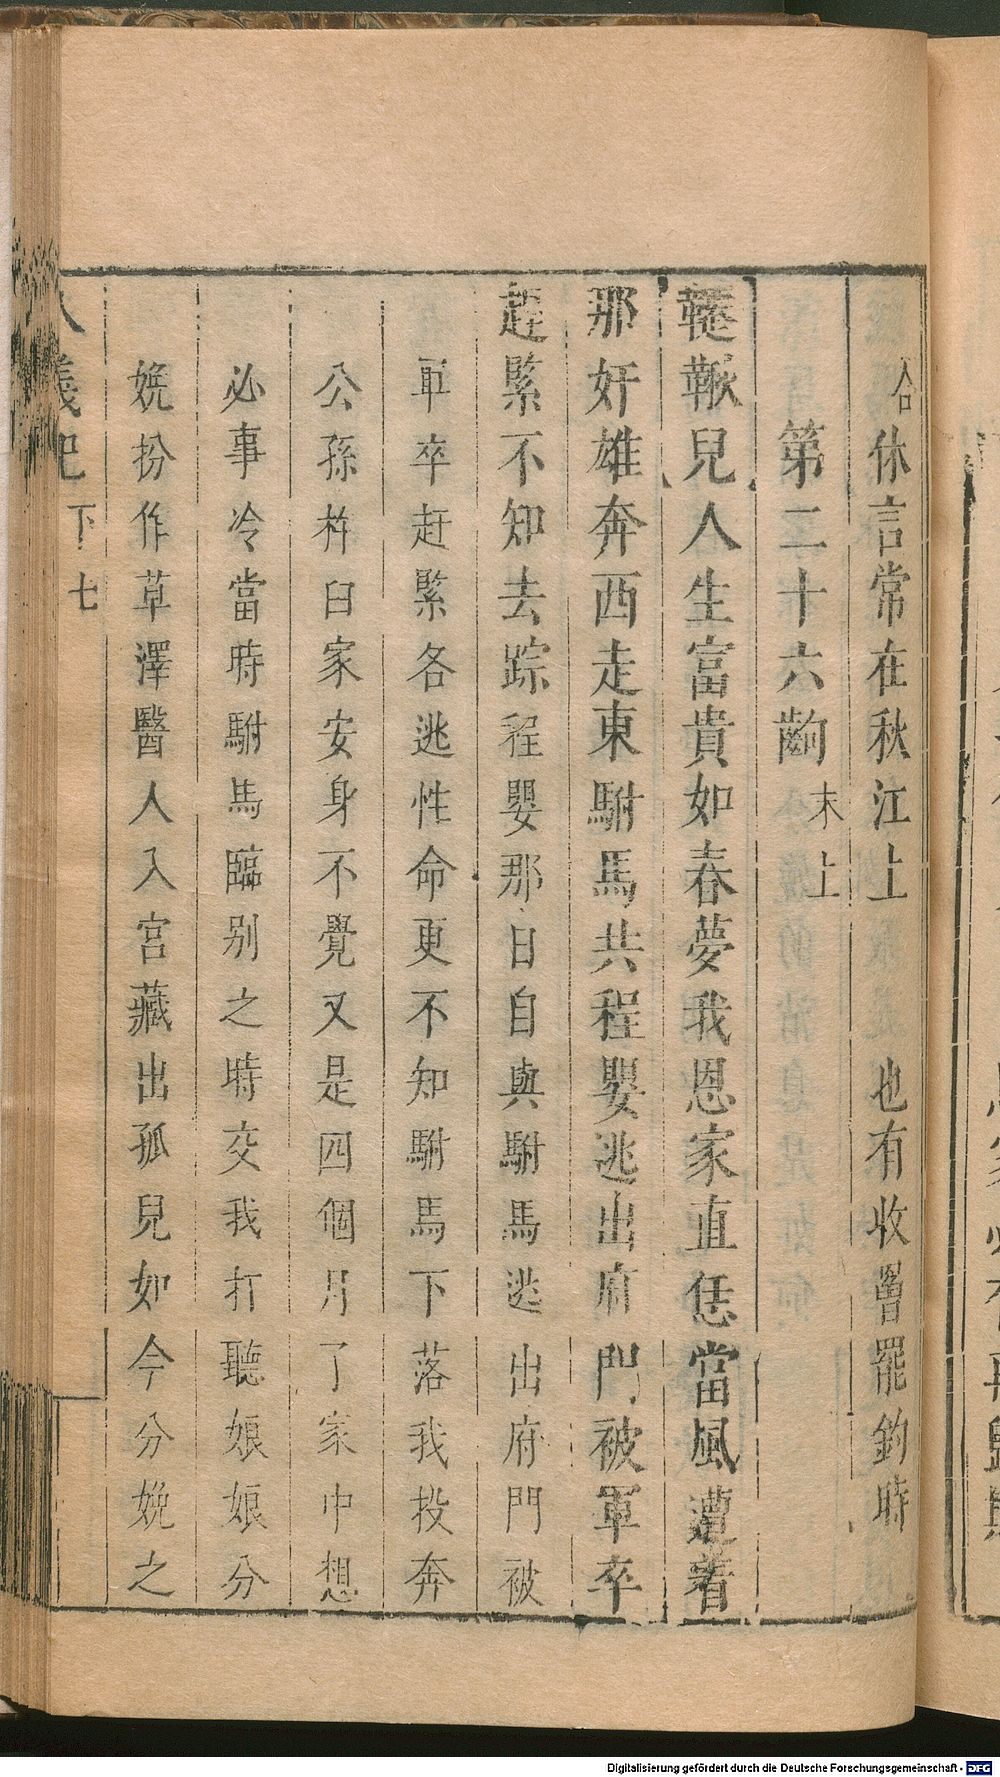 合休言常在秋江上 也有收曾罷鈎時
第二十六齣 末上
鞓鞦兒人生富貴如春夢我恩家直恁當風遭着
那奸雄奔西走東駙馬共程嬰逃出府門被軍卒
趕緊不知去踪程嬰那日自與駙馬逃出府門被
軍卒赶緊各逃性命更不知駙馬下落我投奔
公孫杵臼家安身不覺又是四個月了家中想
必事冷當時駙馬臨别之時交我打聽娘娘分
娩扮作草澤醫人入宮藏出孤兒如今分娩之
八義記 下 七
Digitalisierung gefördert durch die Deutsche Forschungsgemeinschaft - DFG